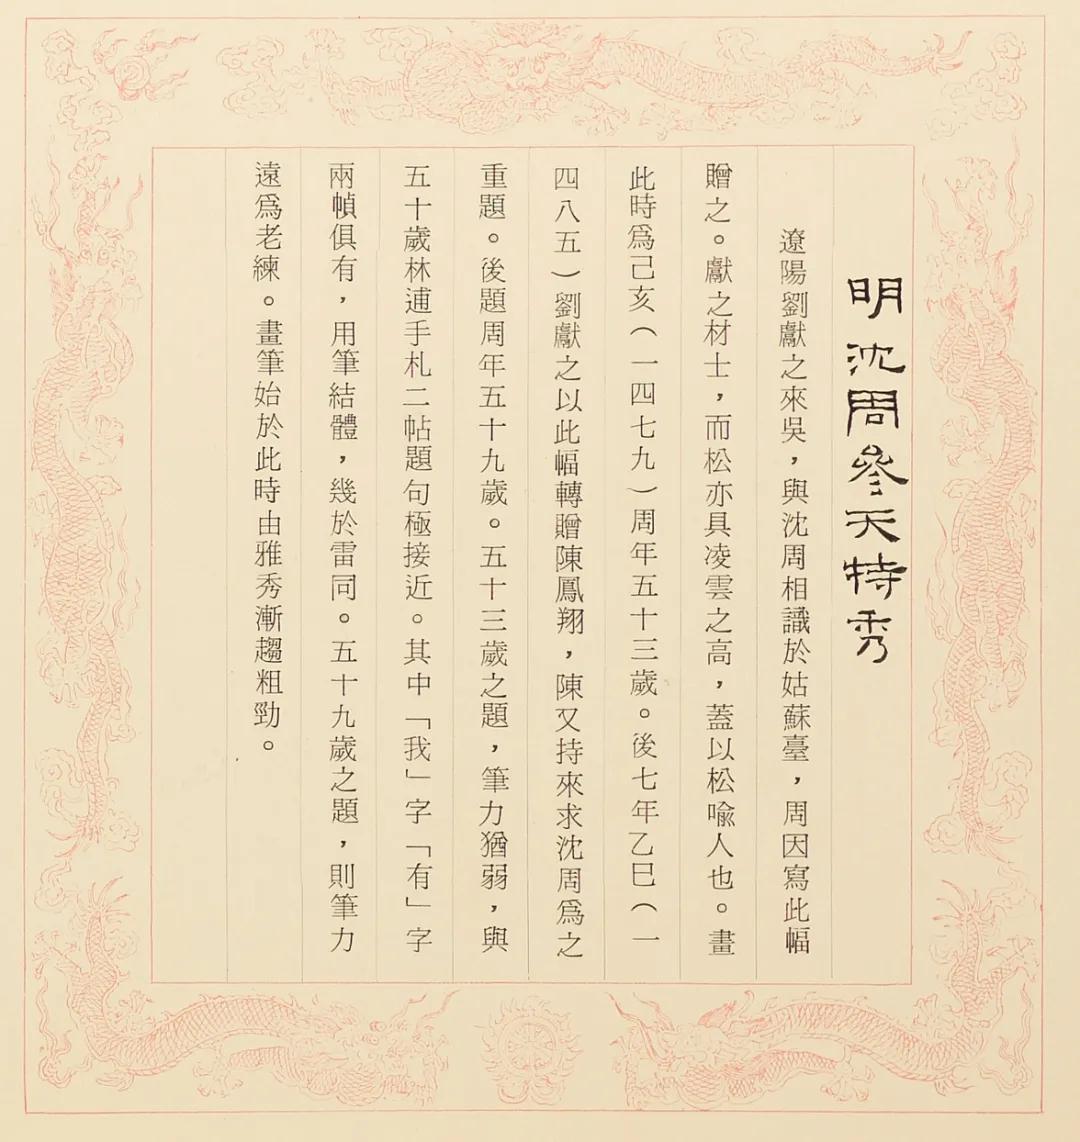 明沈周參天特秀
遼陽劉獻之來吳，與沈周相識於姑蘇臺，周因寫此幅
贈之。獻之材士，而松亦具凌雲之高，蓋以松喻人也。畫
此時爲己亥（一四七九）周年五十三歲。後七年乙巳（一
四八五）劉獻之以此幅轉贈陳鳳翔，陳又持來求沈周爲之
重題。後題周年五十九歲。五十三歲之題，筆力猶弱，與
五十歲林逋手札二帖題句極接近。其中「我」字「有」字
兩幀俱有，用筆結體，幾於雷同。五十九歲之題，則筆力
遠爲老練。畫筆始於此時由雅秀漸趨粗勁。